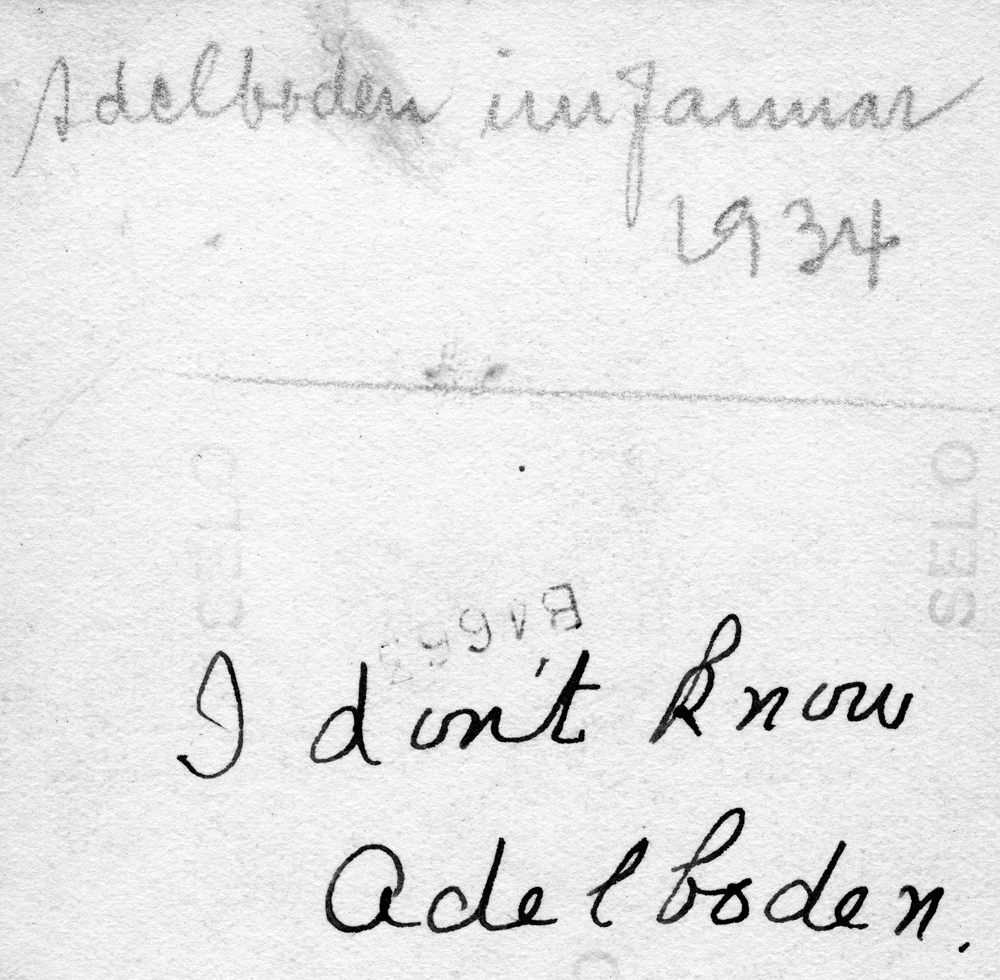 Adelboden im Januar
1934
SELO
SELO
B1665
I don't know
Adelboden.